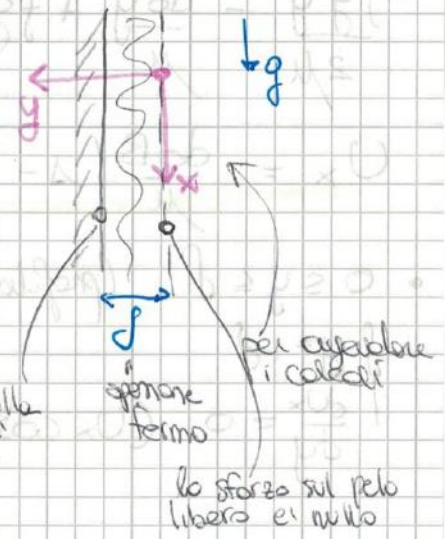 g
x
δ
per agevolare
i calcoli
spessore
fermo
lo sforzo sul pelo
libero è nullo